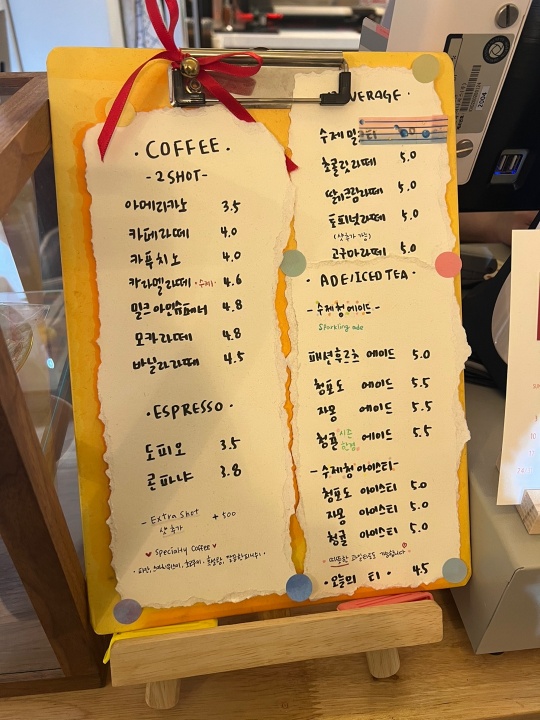 · COFFEE ·
- 2 SHOT -
아메리카노 3.5
카페라떼 4.0
카푸치노 4.0
카라멜라떼 ·수제· 4.6
밀크아인슈페너 4.8
모카라떼 4.8
바닐라라떼 4.5
· ESPRESSO ·
도피오 3.5
콘파냐 3.8
- Extra shot +500
샷추가
♥ Specialty Coffee ♥
VERAGE ·
수제밀크티
초콜릿라떼 5.0
딸기크림라떼 5.0
토피넛라떼 5.0
(샷추가 가능)
고구마라떼 5.0
· ADE/ICED TEA ·
- 수제청에이드 -
Sparkling ade
패션후르츠 에이드 5.0
청포도 에이드 5.5
자몽 에이드 5.5
청귤 시즌한정 에이드 5.5
- 수제청아이스티 -
청포도 아이스티 5.0
자몽 아이스티 5.0
청귤 아이스티 5.0
· 오늘의 티 · 4.5
2004